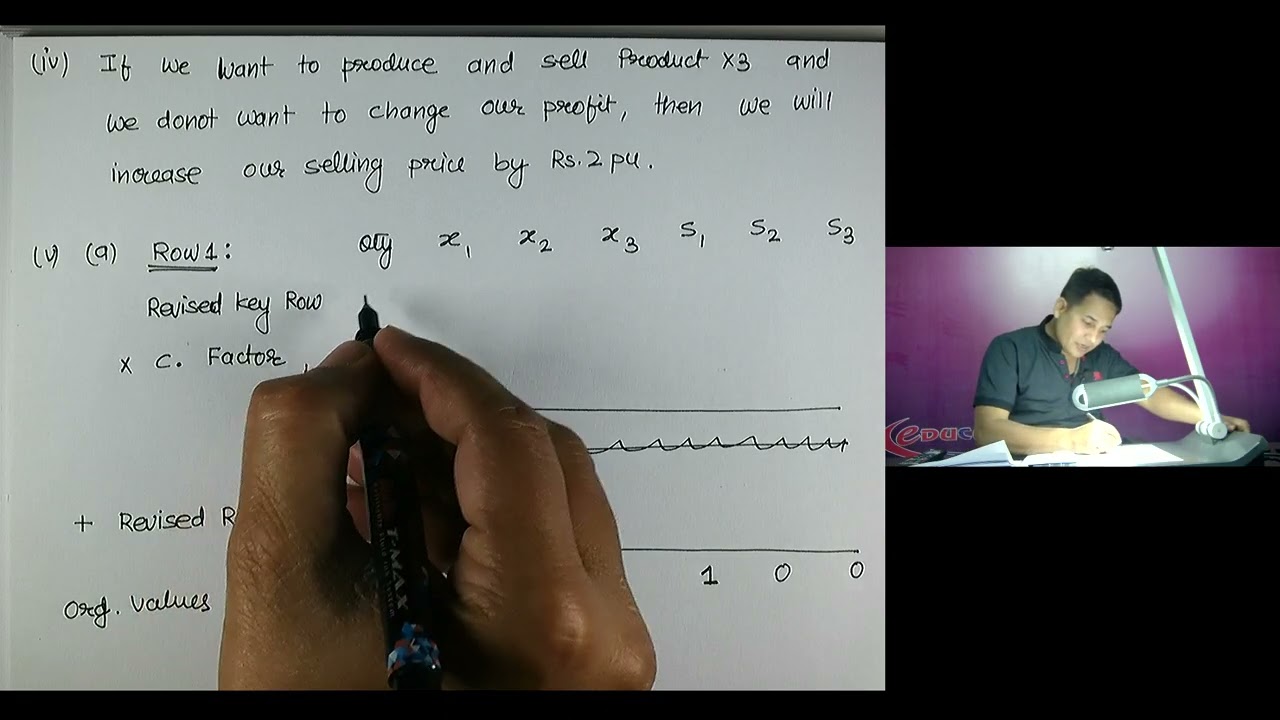 (iv) If we want to produce and sell Product X3 and
we donot want to change our profit, then we will
increase our selling price by Rs. 2 pu.
(v) (a) Row 1: Qty x1 x2 x3 S1 S2 S3
Revised key Row
x C. Factor
+ Revised R
1 0 0
Org. values
T-MAX
EDUC